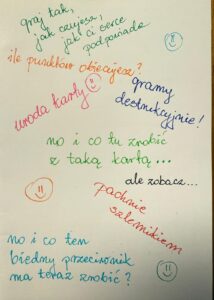 graj tak,
jak czujesz,
jak ci serce
podpowiada
ile punktów obiecujesz?
uroda karty
gramy
destrukcyjnie!
no i co tu zrobić
z taką kartą...
ale zobacz...
pachnie
szlemikiem
no i co ten
biedny przeciwnik
ma teraz zrobić?